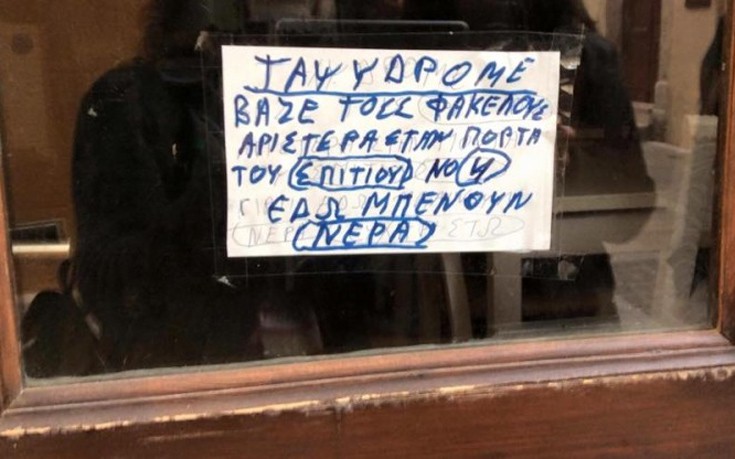 ΤΑΨΥΔΡΟΜΕ
ΒΑΖΕ ΤΟΣΣ ΦΑΚΕΛΟΥΣ
ΑΡΙΣΤΕΡΑ ΣΤΑΝ ΠΟΡΤΑ
ΤΟΥ ΣΠΙΤΙΟΥ ΝΟ 4
ΕΔΩ ΜΠΕΝΟΥΝ
ΝΕΡΑ